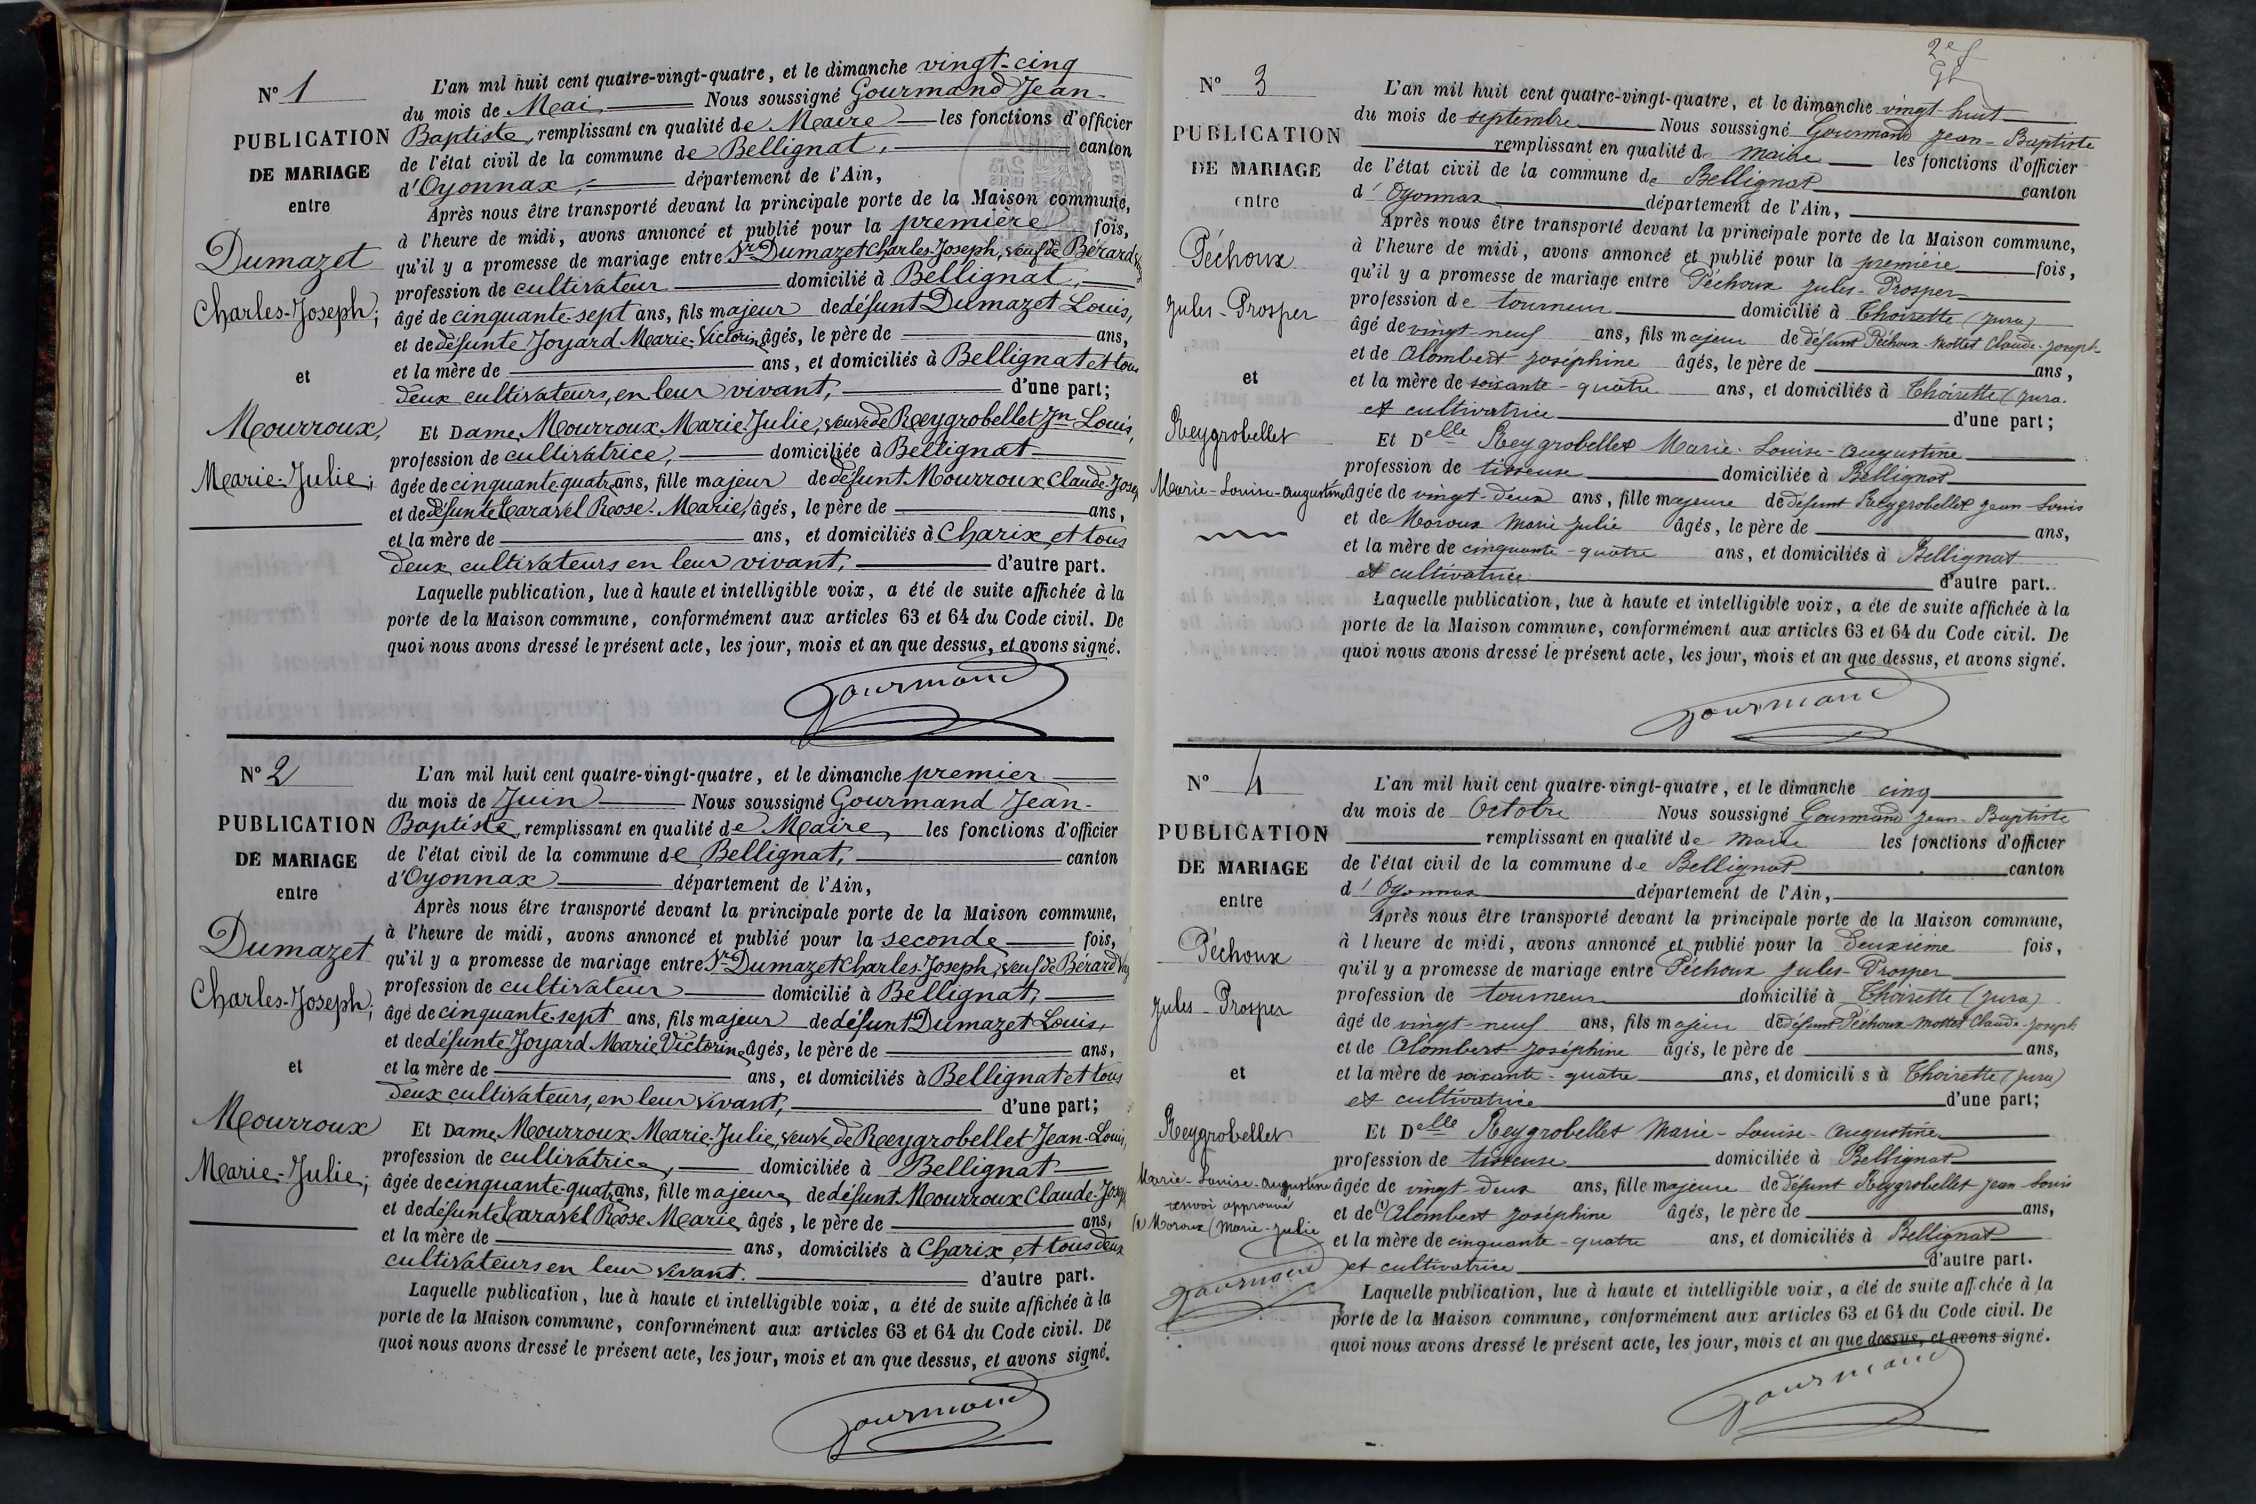 N° 1
PUBLICATION
DE MARIAGE
entre
Dumazet
Charles-Joseph;
et
Mourroux,
Marie-Julie;
L'an mil huit cent quatre-vingt-quatre, et le dimanche vingt-cinq
du mois de Mai, Nous soussigné Gourmand Jean-
Baptiste, remplissant en qualité de Maire les fonctions d'officier
de l'état civil de la commune de Bellignat, canton
d'Oyonnax, département de l'Ain,
Après nous être transporté devant la principale porte de la Maison commune,
à l'heure de midi, avons annoncé et publié pour la première fois,
qu'il y a promesse de mariage entre Sr Dumazet Charles-Joseph, veuf de Bérard
profession de cultivateur domicilié à Bellignat,
âgé de cinquante-sept ans, fils majeur de défunt Dumazet Louis,
et de défunte Joyard Marie-Victorine âgés, le père de ans,
et la mère de ans, et domiciliés à Bellignat et tous
deux cultivateurs, en leur vivant, d'une part;
Et Dame Mourroux Marie-Julie, veuve de Reygrobellet Jn-Louis,
profession de cultivatrice, domiciliée à Bellignat
âgée de cinquante-quatre ans, fille majeur de défunt Mourroux Claude-Josep
et de défunte Caravel Rose-Marie, âgés, le père de ans,
et la mère de ans, et domiciliés à Charix, et tous
deux cultivateurs en leur vivant, d'autre part.
Laquelle publication, lue à haute et intelligible voix, a été de suite affichée à la
porte de la Maison commune, conformément aux articles 63 et 64 du Code civil. De
quoi nous avons dressé le présent acte, les jour, mois et an que dessus, et avons signé.
Gourmand
N° 2
PUBLICATION
DE MARIAGE
entre
Dumazet
Charles-Joseph;
et
Mourroux
Marie-Julie;
L'an mil huit cent quatre-vingt-quatre, et le dimanche premier
du mois de Juin Nous soussigné Gourmand Jean-
Baptiste, remplissant en qualité de Maire, les fonctions d'officier
de l'état civil de la commune de Bellignat, canton
d'Oyonnax département de l'Ain,
Après nous être transporté devant la principale porte de la Maison commune,
à l'heure de midi, avons annoncé et publié pour la seconde fois,
qu'il y a promesse de mariage entre Sr Dumazet Charles-Joseph, veuf de Bérard
profession de cultivateur domicilié à Bellignat,
âgé de cinquante-sept ans, fils majeur de défunt Dumazet Louis,
et de défunte Joyard Marie Victorine âgés, le père de ans,
et la mère de ans, et domiciliés à Bellignat et tous
deux cultivateurs, en leur vivant, d'une part;
Et Dame Mourroux Marie-Julie, veuve de Reygrobellet Jean-Louis,
profession de cultivatrice, domiciliée à Bellignat
âgée de cinquante-quatre ans, fille majeure de défunt Mourroux Claude-Josep
et de défunte Caravel Rose Marie âgés, le père de ans,
et la mère de ans, domiciliés à Charix, et tous deux
cultivateurs en leur vivant. d'autre part.
Laquelle publication, lue à haute et intelligible voix, a été de suite affichée à la
porte de la Maison commune, conformément aux articles 63 et 64 du Code civil. De
quoi nous avons dressé le présent acte, les jour, mois et an que dessus, et avons signé.
Gourmand
2e f
N° 3
PUBLICATION
DE MARIAGE
entre
Péchoux
Jules-Prosper
et
Reygrobellet
Marie-Louise-Augustine
L'an mil huit cent quatre-vingt-quatre, et le dimanche vingt huit
du mois de septembre Nous soussigné Gourmand Jean-Baptiste
remplissant en qualité de maire les fonctions d'officier
de l'état civil de la commune de Bellignat canton
d'Oyonnax département de l'Ain,
Après nous être transporté devant la principale porte de la Maison commune,
à l'heure de midi, avons annoncé et publié pour la première fois,
qu'il y a promesse de mariage entre Péchoux Jules-Prosper
profession de tourneur domicilié à Thoirette (Jura)
âgé de vingt-neuf ans, fils majeur de défunt Péchoux-Mottet Claude-Joseph
et de Alombert Joséphine âgés, le père de ans,
et la mère de soixante-quatre ans, et domiciliés à Thoirette (Jura.
et cultivatrice d'une part;
Et Delle Reygrobellet Marie-Louise-Augustine
profession de tisseuse domiciliée à Bellignat
âgée de vingt-deux ans, fille majeure de défunt Reygrobellet Jean-Louis
et de Moroux Marie Julie âgés, le père de ans,
et la mère de cinquante-quatre ans, et domiciliés à Bellignat
et cultivatrice d'autre part.
Laquelle publication, lue à haute et intelligible voix, a été de suite affichée à la
porte de la Maison commune, conformément aux articles 63 et 64 du Code civil. De
quoi nous avons dressé le présent acte, les jour, mois et an que dessus, et avons signé.
Gourmand
N° 4
PUBLICATION
DE MARIAGE
entre
Péchoux
Jules-Prosper
et
Reygrobellet
Marie-Louise-Augustine
renvoi approuvé
(1) Moroux (Marie-Julie
Gourmand
L'an mil huit cent quatre-vingt-quatre, et le dimanche cinq
du mois de Octobre Nous soussigné Gourmand Jean-Baptiste
remplissant en qualité de maire les fonctions d'officier
de l'état civil de la commune de Bellignat canton
d'Oyonnax département de l'Ain,
Après nous être transporté devant la principale porte de la Maison commune,
à l'heure de midi, avons annoncé et publié pour la deuxième fois,
qu'il y a promesse de mariage entre Péchoux Jules-Prosper
profession de tourneur domicilié à Thoirette (Jura)
âgé de vingt-neuf ans, fils majeur de défunt Péchoux-Mottet Claude-Joseph
et de Alombert Joséphine âgés, le père de ans,
et la mère de soixante-quatre ans, et domiciliés à Thoirette (Jura)
et cultivatrice d'une part;
Et Delle Reygrobellet Marie-Louise-Augustine
profession de tisseuse domiciliée à Bellignat
âgée de vingt-deux ans, fille majeure de défunt Reygrobellet Jean-Louis
et de (1) Alombert Joséphine âgés, le père de ans,
et la mère de cinquante-quatre ans, et domiciliés à Bellignat
et cultivatrice d'autre part.
Laquelle publication, lue à haute et intelligible voix, a été de suite affichée à la
porte de la Maison commune, conformément aux articles 63 et 64 du Code civil. De
quoi nous avons dressé le présent acte, les jour, mois et an que dessus, et avons signé.
Gourmand